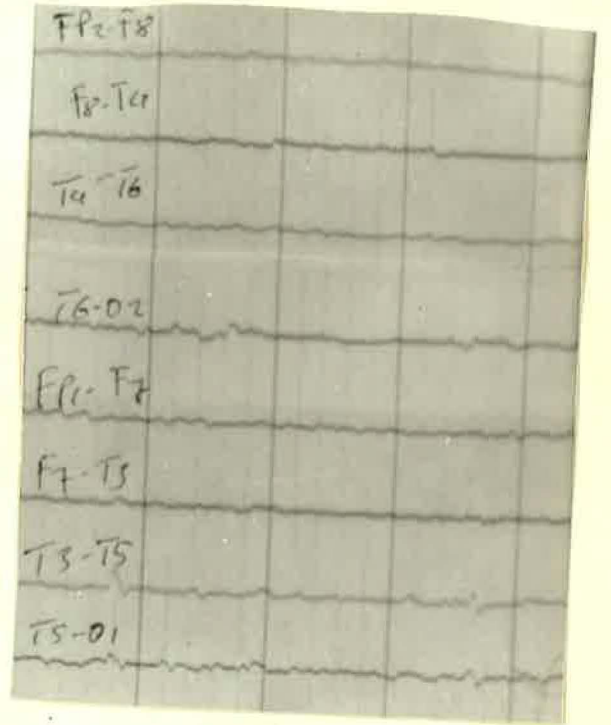 FP2-F8
F8-T4
T4-T6
T6-O2
FP1-F7
F7-T3
T3-T5
T5-O1